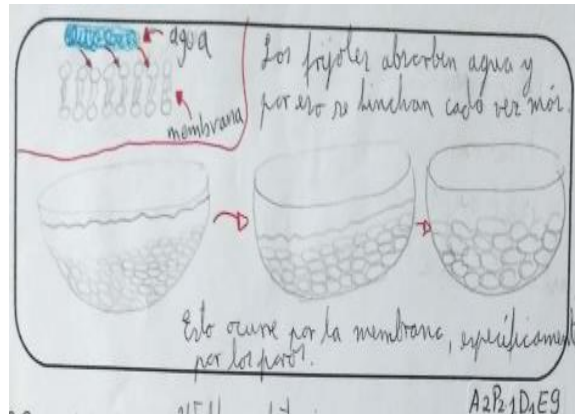 agua
membrana
Los frijoles absorben agua y
por eso se hinchan cada vez más.
Esto ocurre por la membrana, específicament
por los poros.
A2P21D1E9